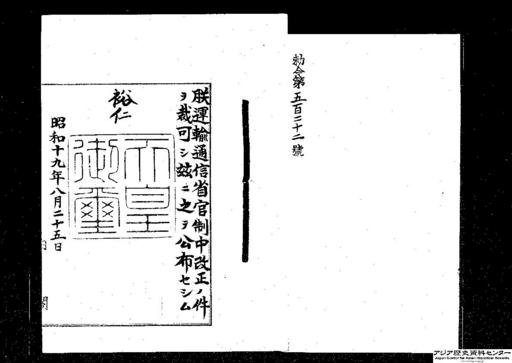 勅令第五百三十二號
朕運輸通信省官制中改正ノ件
ヲ裁可シ玆ニ之ヲ公布セシム
裕仁
天皇
御璽
昭和十九年八月二十五日
アジア歴史資料センター
Japan Center for Asian Historical Records